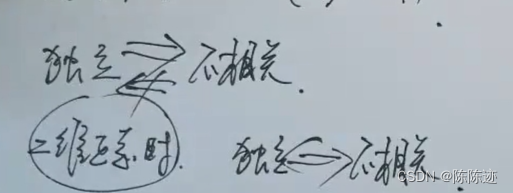 独立 ⇒ 不相关.
⇍
二维正态时. 独立 ⇔ 不相关.
CSDN @陈陈迹